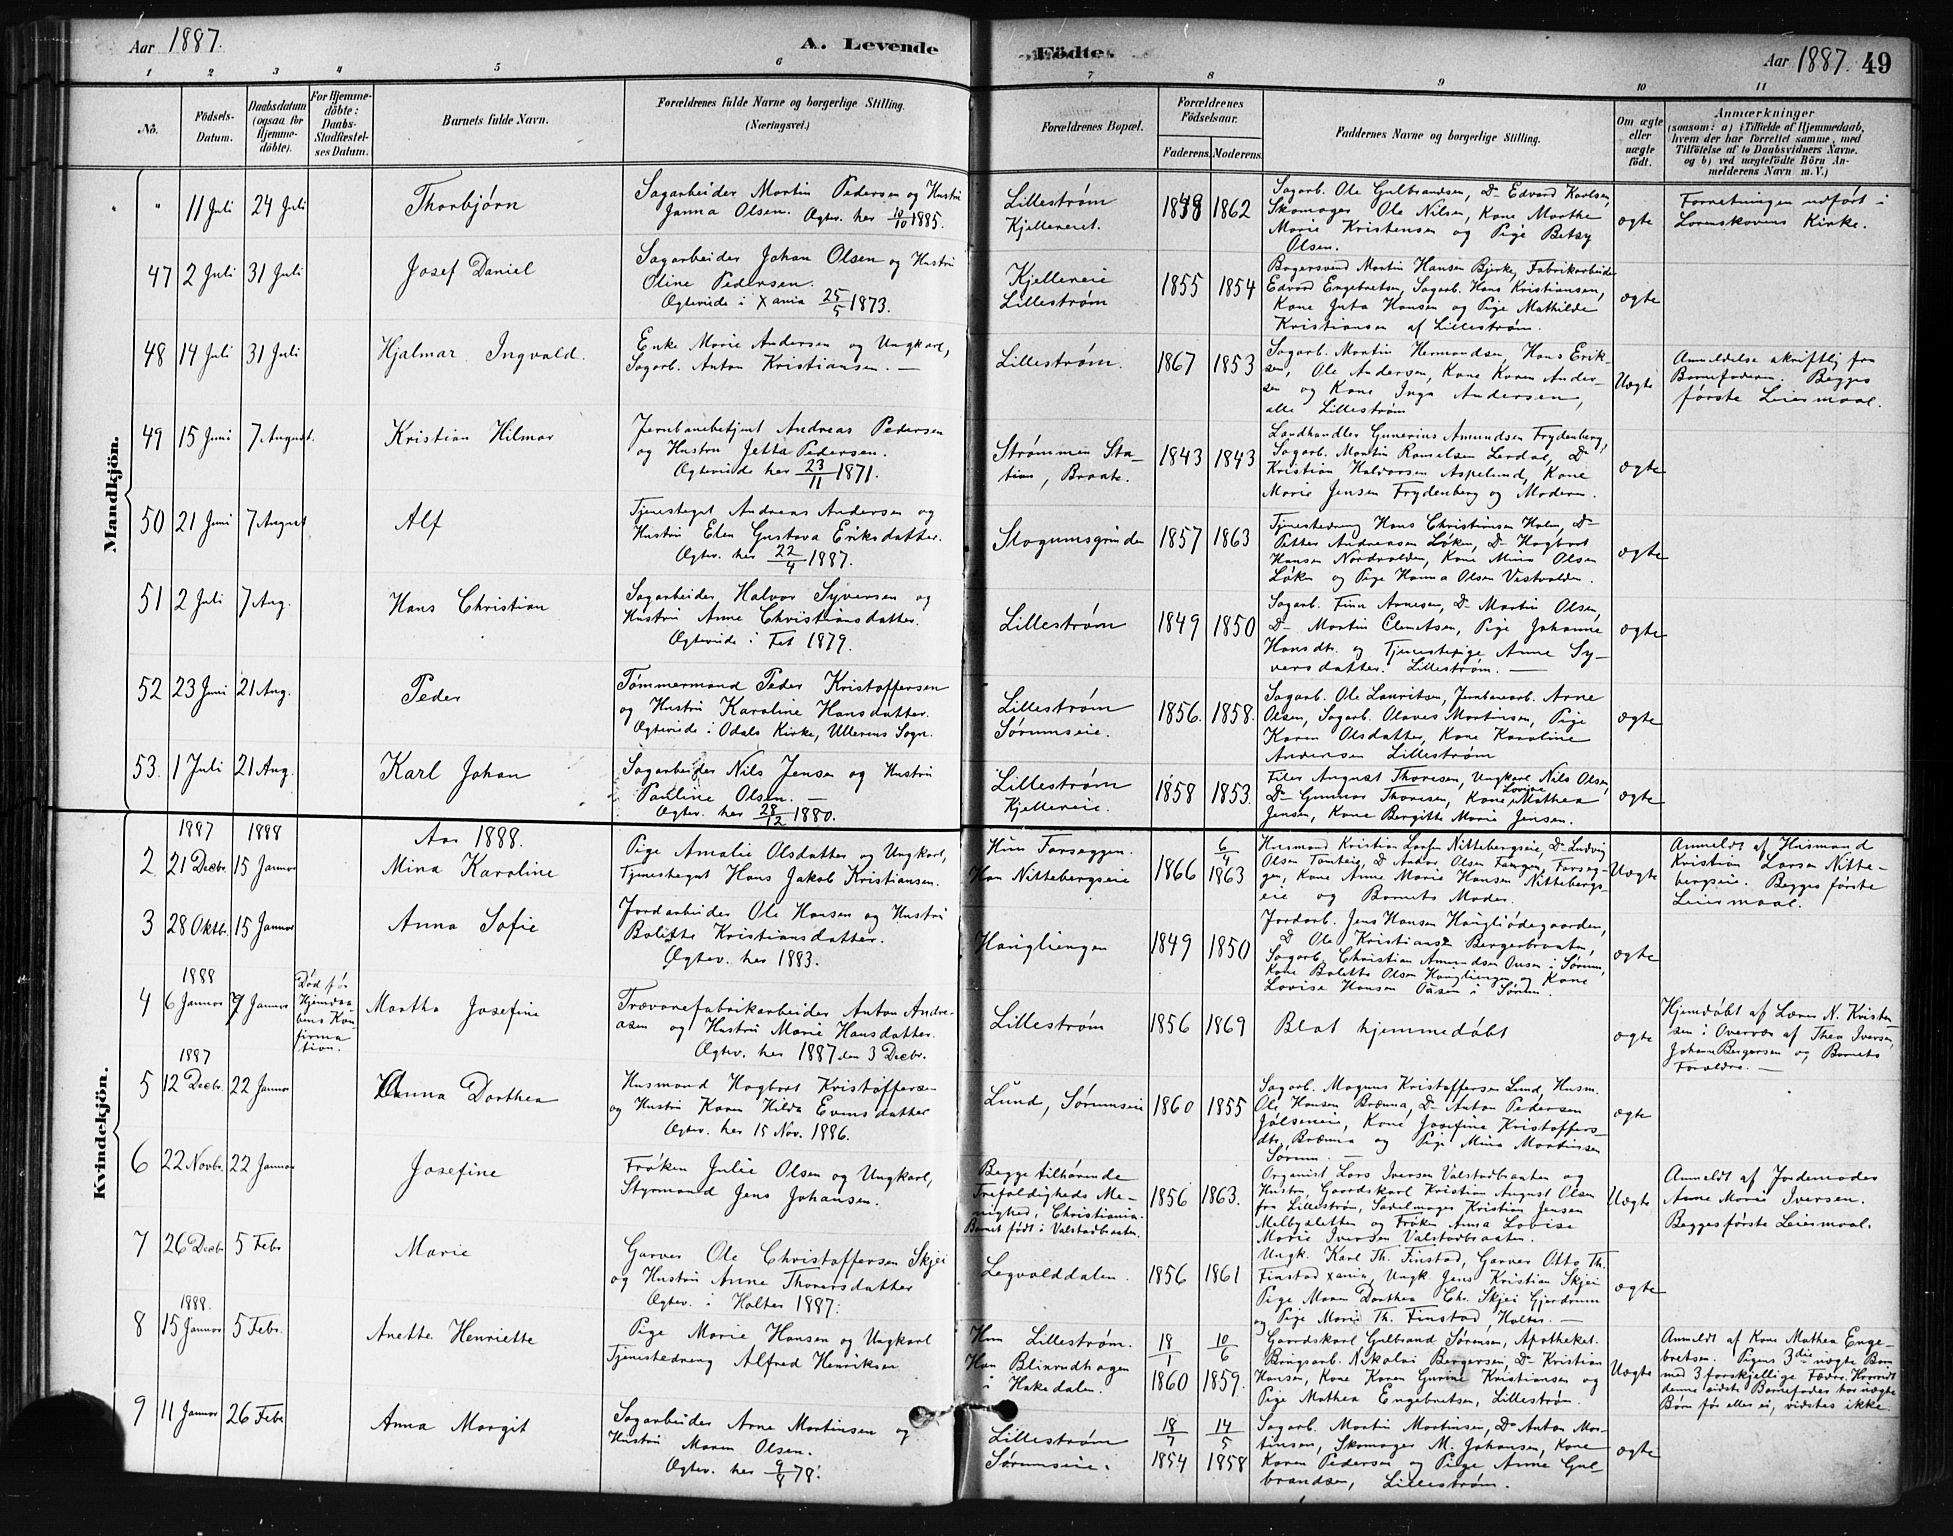 Aar 1887.
A. Levende
Födte.
Aar 1887. 49
1 2 3 4 5 6 7 8 9 10 11
No.
Födsels-
Datum.
Daabsdatum
(ogsaa for
Hjemme-
döbte).
For Hjemme-
döbte:
Daabs-
Stadfæstel-
ses Datum.
Barnets fulde Navn.
Forældrenes fulde Navne og borgerlige Stilling.
(Næringsvei.)
Forældrenes Bopæl.
Forældrenes
Födselsaar.
Faderens. Moderens.
Faddernes Navne og borgerlige Stilling.
Om ægte
eller
uægte
födt.
Anmærkninger
(saasom: a) i Tilfælde af Hjemmedaab,
hvem der har forrettet samme, med
Tilföielse af to Daabsvidners Navne.
og b) ved uægtefödte Börn An-
melderens Navn m. V.)
Mandkjön.
" " 11 Juli 24 Juli
Thorbjørn
Sagarbeider Martin Pedersen og Hustru
Janna Olsen. Ægtev. her 10/10 1885.
Lillestrøm
Kjellereiet.
1862
Sagarb. Ole Gulbrandsen, Do Edvard Karlsen,
Skomager Ole Nilsen, Kone Marthe
Marie Kristensen og Pige Betsy
Olsen.
ægte
Forretningen udført i
Lørenskovens Kirke.
47 2 Juli 31 Juli
Josef Daniel
Sagarbeider Johan Olsen og Hustru
Oline Pedersen.
Ægteviede i Xania 25/5 1873.
Kjellereie
Lillestrøm
1855 1854
Bagersvend Martin Hansen Bjerke, Fabrikarbeider
Edvard Engebretsen, Sagarb. Hans Kristiansen,
Kone Juta Hansen og Pige Mathilde
Kristiansen af Lillestrøm.
ægte
48 14 Juli 31 Juli
Hjalmar Ingvald.
Enke Marie Andersen og Ungkarl,
Sagarb. Anton Kristiansen. —
Lillestrøm.
1867 1853
Sagarb. Martin Hermandsen, Hans Erik-
sen, Ole Andersen, Kone Karen Ander-
sen og Kone Inga Andersen,
alle Lillestrøm
Uægte
Anmeldelse skriftlig fra
Barnefaderen. Begges
første Leiermaal.
49 15 Juni 7 August.
Kristian Hilmar
Jernbanebetjent Andreas Pedersen
og Hustru Jetta Pedersen.
Ægteviede her 23/11 1871.
Strømmen Sta-
tion, Braate.
1843 1843
Landhandler Gunerius Amundsen Frydenberg,
Sagarb. Martin Lerdal, Do
Kristian Halvorsen Aspelund, Kone
Marie Jensen Frydenberg og Moderen.
ægte
50 21 Juni 7 August
Alf
Tjenestegut Andreas Andersen og
Hustru Elen Gustava Eriksdatter.
Ægtev. her 22/4 1887.
1857 1863
Tjenestedreng Hans Christiansen Holm, Do
Petter Andreassen Løken, Do Hagbart
Hansen Nordvolden, Kone Mina Olsen
Løken og Pige Hanna Olsen Vestvolden.
ægte
51 2 Juli 7 Aug.
Hans Christian
Sagarbeider Halvor Syversen og
Hustru Anne Christiansdatter.
Ægteviede i Fet 1879.
Lillestrøm
1849 1850
Sagarb. Finn Arnesen, Do Martin Olsen,
Do Martin Clemetsen, Pige Johanne
Hansdtr. og Tjenestepige Anne Sy-
versdatter. Lillestrøm. —
ægte
52 23 Juni 21 Aug.
Peder
Tømmermand Peder Kristoffersen
og Hustru Karoline Hansdatter.
Ægteviede i Odals Kirke, Ullerens Sogn.
Lillestrøm
Sørumseie.
1856. 1858.
Sagarb. Ole Lauritsen, Jernbanearb. Arne
Olsen, Sagarb. Olaves Martinsen, Pige
Karen Olsdatter, Kone Karoline
Andersen Lillestrøm
ægte
53. 1 Juli 21 Aug.
Karl Johan
Sagarbeider Nils Jensen og Hustru
Pauline Olsen. —
Ægtev. her 28/12 1880.
Lillestrøm
Kjellereie.
1858 1853.
Filer August Thoresen, Ungkarl Nils Olsen,
Do Gunnar Thoresen, Kone Lovise Mathea
Jensen, Kone Bergitte Marie Jensen.
ægte
Kvindekjön.
1887 1888
Aar 1888.
2 21 Decbr. 15 Januar
Mina Karoline
Pige Amalie Olsdatter og Ungkarl,
Tjenestegut Hans Jakob Kristiansen.
Hun Farseggen.
Han Nittebergseie
1866 6/4 1863
Husmand Kristian Larsen Nittebergseie, Do Ludvig
Olsen Do Andor. Olsen Farseg-
gen, Kone Anne Marie Hansen Nittebergs-
eie og Barnets Moder.
Uægte
Anmeldt af Husmand
Kristian Larsen Nitte-
bergseie. Begges første
Leiermaal.
3 28 Oktb. 15 Januar
Anna Sofie
Jordarbeider Ole Hansen og Hustru
Bolette Kristiansdatter.
Ægtev. her 1883.
Haugliengen
1849 1850
Jordarb. Jens Hansen Haugliødegaarden,
Do Ole Kristiansen Bergerbraaten,
Sagarb. Christian Amundsen i Sørum,
Kone Bolette Olsen Haugliengen og Kone
Lovise Hansen i Sørum.
ægte
1888
4 6 Januar 7 Januar
Død før
Hjemdaa-
bens Kon-
firma-
tion.
Martha Josefine
Trævarefabrikarbeider Anton Andre-
asen og Hustru Marie Hansdatter.
Ægtev. her 1887 den 3 Decbr.
Lillestrøm
1856 1869
Blot hjemmedøbt
ægte
Hjemdøbt af Lærer N. Kristen-
sen i Overvær af Thea Iversen,
Johan Bergersen og Barnets
Forældre. —
1887
5 12 Decbr. 22 Januar
Anna Dorthea
Husmand Hagbart Kristoffersen
og Hustru Karen Hilda Evensdatter
Ægtev. her 15 Nov. 1886.
Lund, Sørumseie
1860 1855
Sagarb. Magnus Kristoffersen Lund, Husm.
Ole Hansen Brænna, Do Anton Pedersen
Jølseneie, Kone Josefine Kristoffers-
dtr. Brænna og Pige Mina Martinsen
Sørum. —
ægte
6 22 Novbr. 22 Januar
Josefine
Frøken Julie Olsen og Ungkarl,
Styrmand Jens Johansen.
Begge tilhørende
Trefoldigheds Me-
nighed, Christiania.
Barnet født i Valstadbraaten.
1856 1863.
Organist Lars Iversen Valstadbraaten og
Hustru, Gaardskarl Kristian August Olsen
fra Lillestrøm, Sadelmager Kristian Jensen
Melbysletten og Frøken Anna Lovise
Marie Iversen Valstadbraaten.
Uægte
Anmeldt af Jordemoder
Anne Marie Iversen.
Begges første Leiermaal.
7 26 Decbr. 5 Febr
Marie
Garver Ole Christoffersen Skjei
og Hustru Anne Thorersdatter
Ægtev. i Holter 1887.
Legvolddalen.
1856 1861
Ungk. Karl Th. Finstad, Garver Otto Th.
Finstad Xania, Ungk. Jens Kristian Skjei
Pige Maren Dorthea Chr. Skjei Gjerdrum
og Pige Marie Th. Finstad, Holter. —
ægte
1888.
8 15 Januar 5 Febr.
Anette Henriette
Pige Marie Hansen og Ungkarl
Tjenestedreng Alfred Henriksen
Hun Lillestrøm.
Han Blinrudhagen
i Hakedalen.
18/1 1860 10/6 1859.
Gaardskarl Gulbrand Sørensen, Apotheket.
Brugsarb. Nikolai Bergersen, Do Kristian
Hansen, Kone Karen Gurine Kristiansen og
Pige Mathea Engebretsen, Lillestrøm.
Uægte
Anmeldt af Kone Mathea Enge-
bretsen. Pigens 3die uægte Barn
med 3 forskjellige Fædre. Hvorvidt
denne sidste Barnefader har uægte
Børn før eller ei, vidstes ikke.
9 11 Januar 26 Febr
Anna Margit
Sagarbeider Arne Martinsen og
Hustru Maren Olsen.
Ægtev. her 78.
Lillestrøm
Sørumseie.
18/7 1854 14/5 1858
Sagarb. Martin Martinsen, Do Anton Mar-
tinsen, Skomager M. Johansen, Kone
Karen Pedersen og Pige Anne Gul-
brandsen, Lillestrøm.
ægte